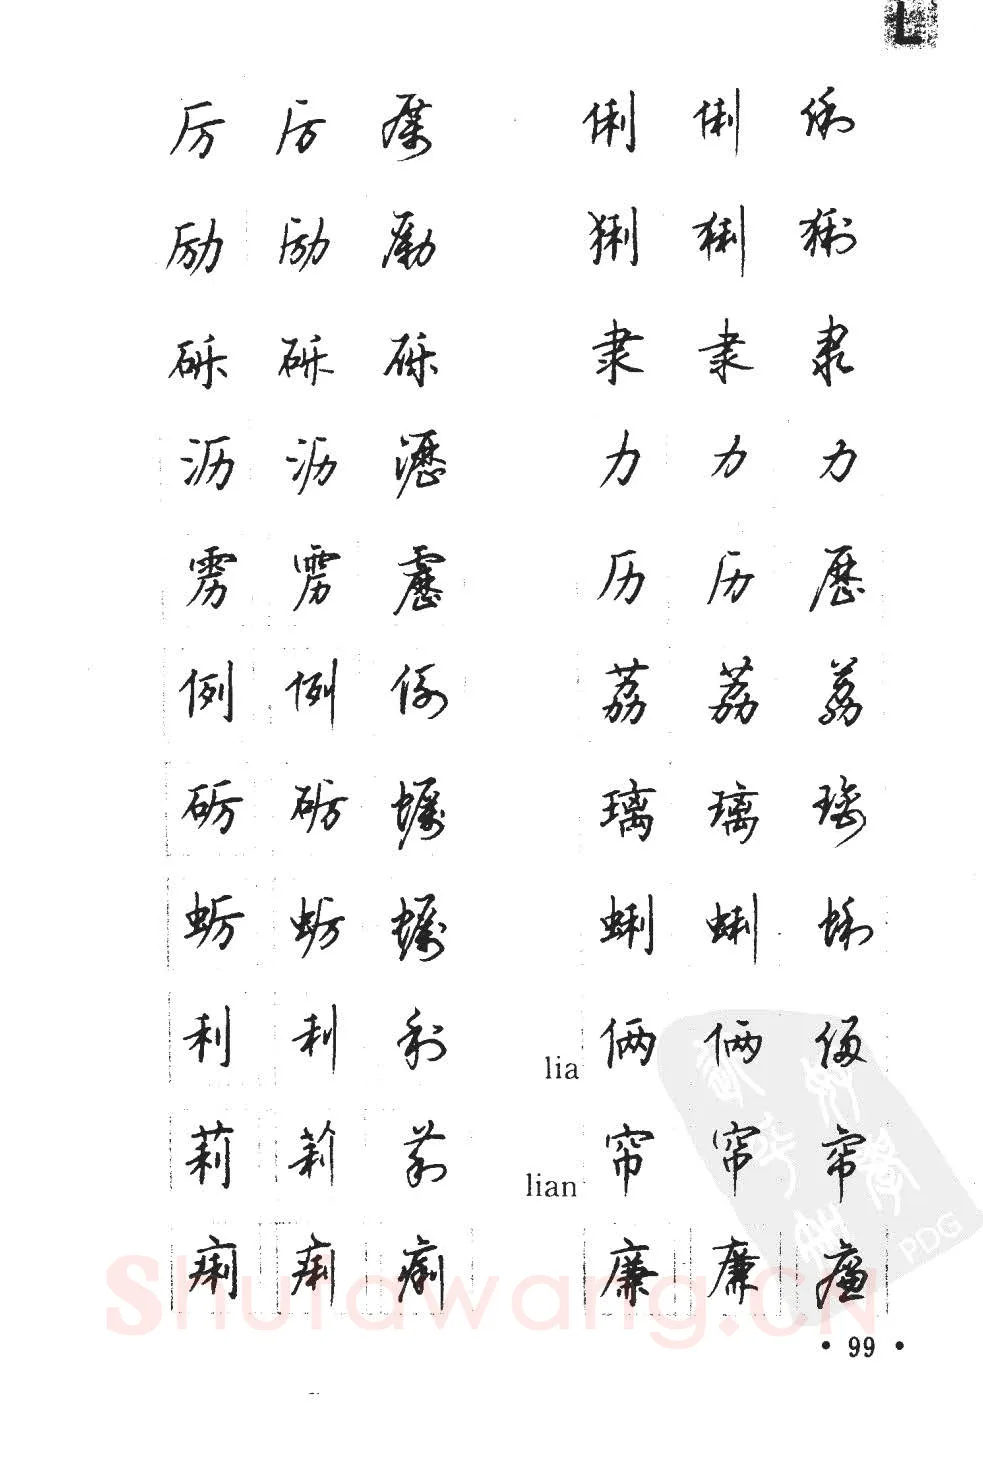 L
厉 厉 厲
励 励 勵
砾 砾 砾
沥 沥 瀝
雳 雳 靂
例 例 例
砺 砺 蠣
蛎 蛎 蠣
利 利 利
莉 莉 莉
痢 痢 痢
俐 俐 俐
猁 猁 猁
隶 隶 隶
力 力 力
历 历 歷
荔 荔 荔
璃 璃 璃
蜊 蜊 蜊
lia 俩 俩 俩
lian 帘 帘 帘
廉 廉 廉
• 99 •
Shufawang.CN
PDG